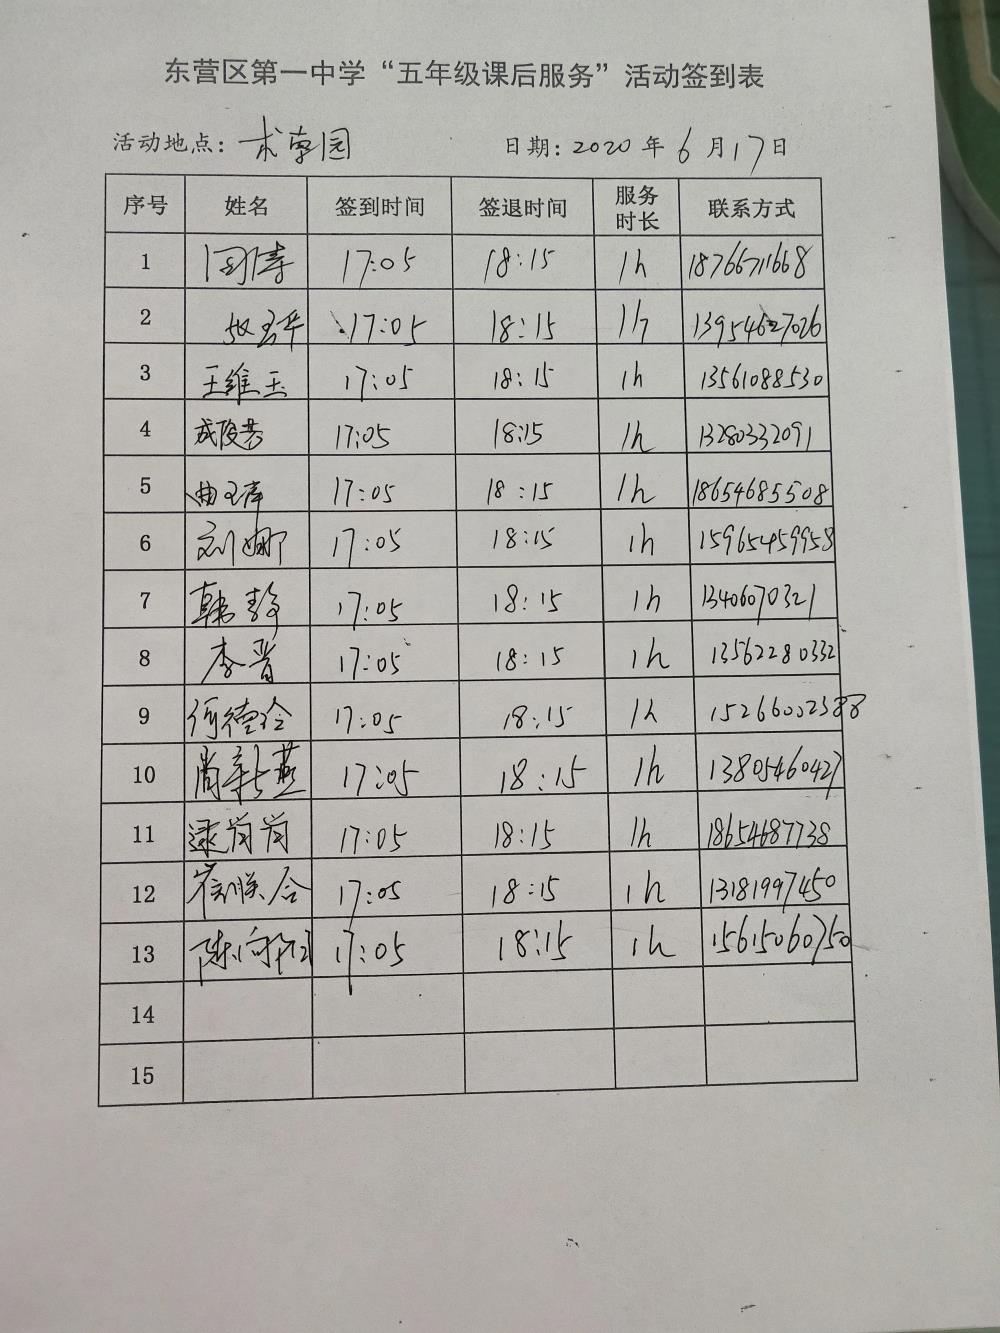 东营区第一中学“五年级课后服务”活动签到表
活动地点: 术学园 日期: 2020年6月17日
序号 姓名 签到时间 签退时间 服务时长 联系方式
1 17:05 18:15 1h 18766711668
2 17:05 18:15 1h 13954627026
3 王维玉 17:05 18:15 1h 13561088530
4 成俊芬 17:05 18:15 1h 13280332091
5 17:05 18:15 1h 18654685508
6 刘娜 17:05 18:15 1h 15965459958
7 韩静 17:05 18:15 1h 13406070321
8 李晋 17:05 18:15 1h 13562280332
9 何德玲 17:05 18:15 1h 15266002388
10 尚新燕 17:05 18:15 1h 13805460427
11 逯岗岗 17:05 18:15 1h 18654687738
12 17:05 18:15 1h 13181997450
13 17:05 18:15 1h 15615060750
14
15